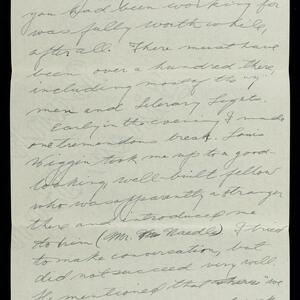 you had been working for
was fully worth while,
after all. There must have
been over a hundred there,
including mostly the "
men and Literary Lights.
Early in the evening I made
one tremendous break. Louis
took me up to a good-
looking, well-built fellow
who was apparently a stranger
there and introduced me
to him (Mr. Needle) I tried
to make conversation, but
did not succeed very well.
He mentioned that "we